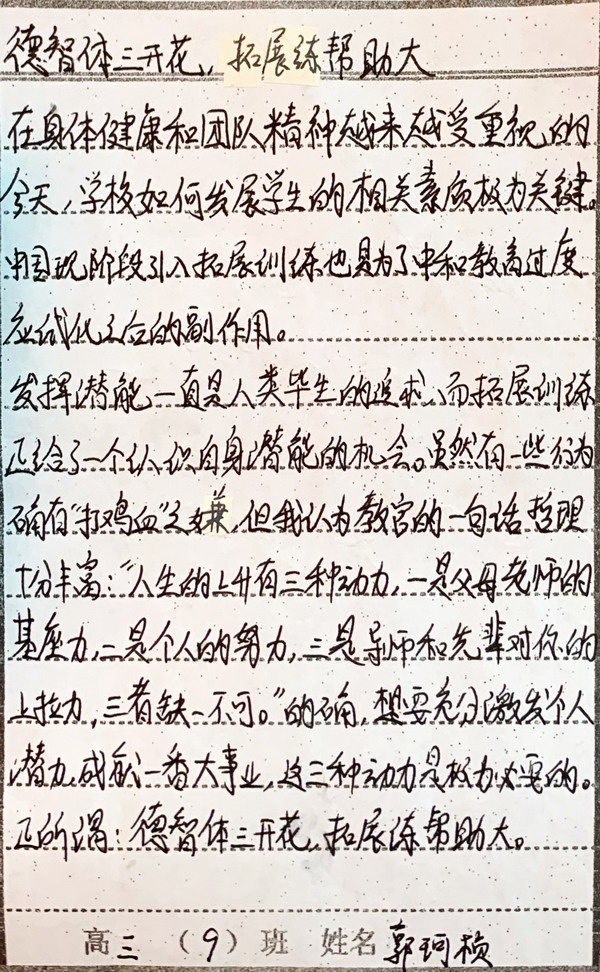 德智体三开花，拓展练帮助大
在身体健康和团队精神越来越受重视的
今天，学校如何发展学生的相关素质极为关键。
中国现阶段引入拓展训练也是为了中和教育过度
应试化之后的副作用。
发挥潜能一直是人类毕生的追求，而拓展训练
正给了一个认识自身潜能的机会。虽然有一些行为
确有“打鸡血”之嫌，但我认为教官的一句话哲理
十分丰富：“人生的上升有三种动力，一是父母老师的
基座力，二是个人的努力，三是导师和先辈对你的
上拉力，三者缺一不可。”的确，想要充分激发个人
潜力，成就一番大事业，这三种动力是极为必要的。
正所谓：德智体三开花，拓展练帮助大。
高三（9）班 姓名 郭珂桢